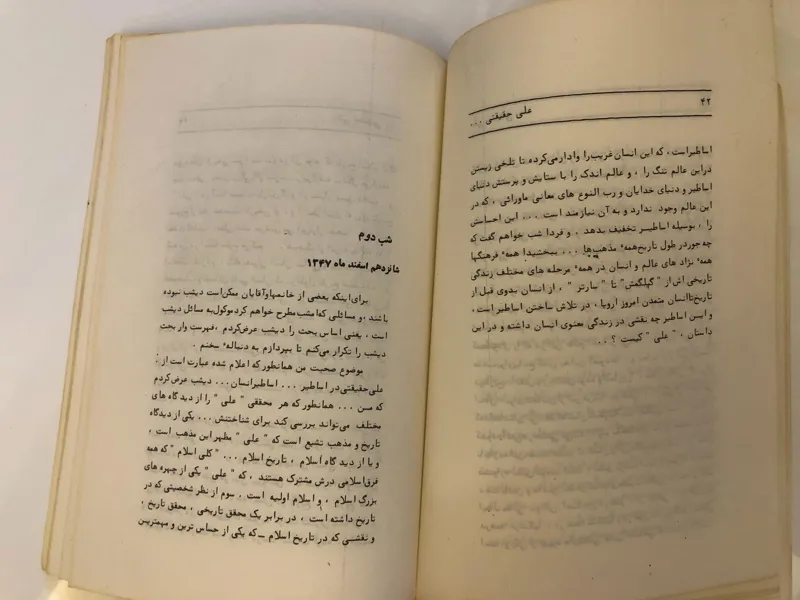 ۴۲
علی حقیقتی ...
اساطیراست ، که این انسان غریب را وادارمی‌کرده تا تلخی زیستن
دراین عالم تنگ را ، و عالم اندک را با ستایش و پرستش دنیای
اساطیر و دنیای خدایان و رب النوع های معانی ماورائی ، که در
این عالم وجود ندارد و به آن نیازمند است ... این احساسش
را ، بوسیله اساطیر تخفیف بدهد ، و فردا شب خواهم گفت که
چه‌جوردر طول تاریخ‌همهٔ مذهب‌ها ... ببخشید! همهٔ فرهنگها
همهٔ نژاد های عالم و انسان در همهٔ مرحله های مختلف زندگی
تاریخی اش از " گیلگمش" تا " سارتر " ، از انسان بدوی قبل از
تاریخ‌تاانسان متمدن امروز اروپا ، در تلاش ساختن اساطیر است ،
و ایـن اساطیر چه نقشی در زندگی معنوی انسان داشته و در این
داستان ، " علی " کیست ؟ ...
شب دوم
شانزدهم اسفند ماه ۱۳۴۷
برای‌اینکه بعضی از خانمهاوآقایان ممکن‌است دیشب نبوده
باشند ، و مسائلی که‌امشب‌مطرح خواهم کردموکول‌به مسائل دیشب
است ، یعنی اساس بحث را دیشب عرض‌کردم ، فهرست وار بحث
دیشب را تکرار می‌کنم تا بپردازم به دنبالهٔ سخنم .
موضوع صحبت من همانطورکه اعلام شده عبارت است از :
علی‌حقیقتی‌در اساطیر ... اساطیرانسان ... دیشب عرض‌کردم
که مـن ... همانطور که هر محققی " علی " را از دیدگاه های
مختلف می‌تواند بررسی کند برای شناختنش ... یکی از دیدگاه
تاریخ و مذهب تشیع است که " علی " مظهر این مذهب است ،
و یا از دید گاه اسلام ، تاریخ اسلام ... " کلی اسلام " که همه
فرق‌اسلامی درش مشترک هستند ، که " علی " یکی از چهره های
بزرگ اسلام ، و اسلام اولیه است . سوم از نظر شخصیتی که در
تاریخ داشته است ، در برابر یک محقق تاریخی ، محقق تاریخ ،
و نقشـی که در تاریخ اسلام ــ که یکی از حساس ترین و مهمتریـن